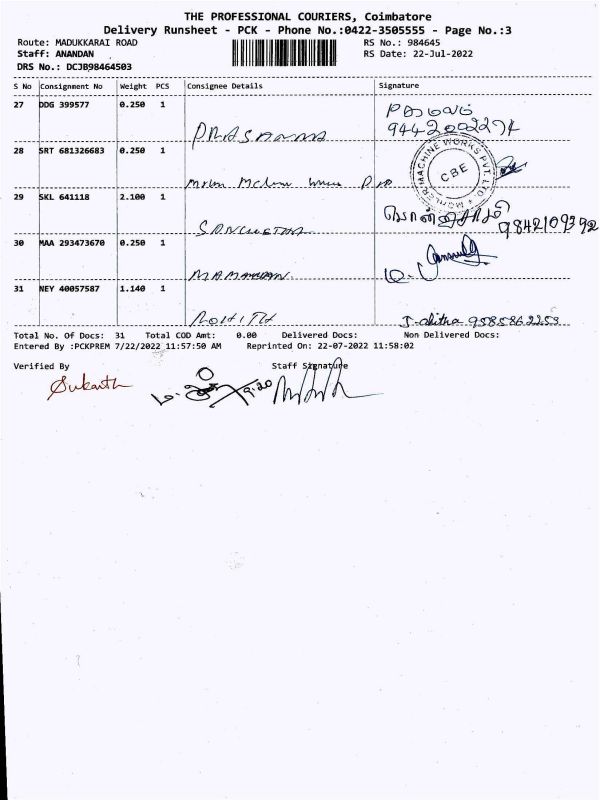 THE PROFESSIONAL COURIERS, Coimbatore
Delivery Runsheet - PCK - Phone No.:0422-3505555 - Page No.:3
Route: MADUKKARAI ROAD RS No.: 984645
Staff: ANANDAN RS Date: 22-Jul-2022
DRS No.: DCJB98464503
S No Consignment No Weight PCS Consignee Details Signature
27 DDG 399577 0.250 1
PRASANNA
28 SRT 681326683 0.250 1
MACHINE WORKS PVT. LTD
CBE
29 SKL 641118 2.100 1
9842109392
30 MAA 293473670 0.250 1
31 NEY 40057587 1.140 1
ROHITH 9585862253
Total No. Of Docs: 31 Total COD Amt: 0.00 Delivered Docs: Non Delivered Docs:
Entered By :PCKPREM 7/22/2022 11:57:50 AM Reprinted On: 22-07-2022 11:58:02
Verified By Staff Signature
9.20